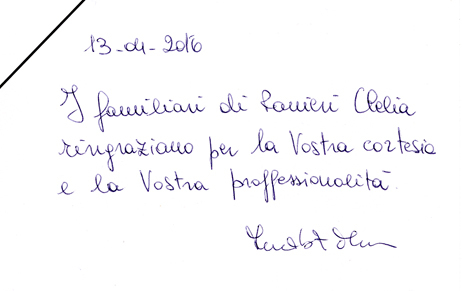 13-04-2016
I familiari di Ranieri Clelia
ringraziano per la Vostra cortesia
e la Vostra proffessionalità.